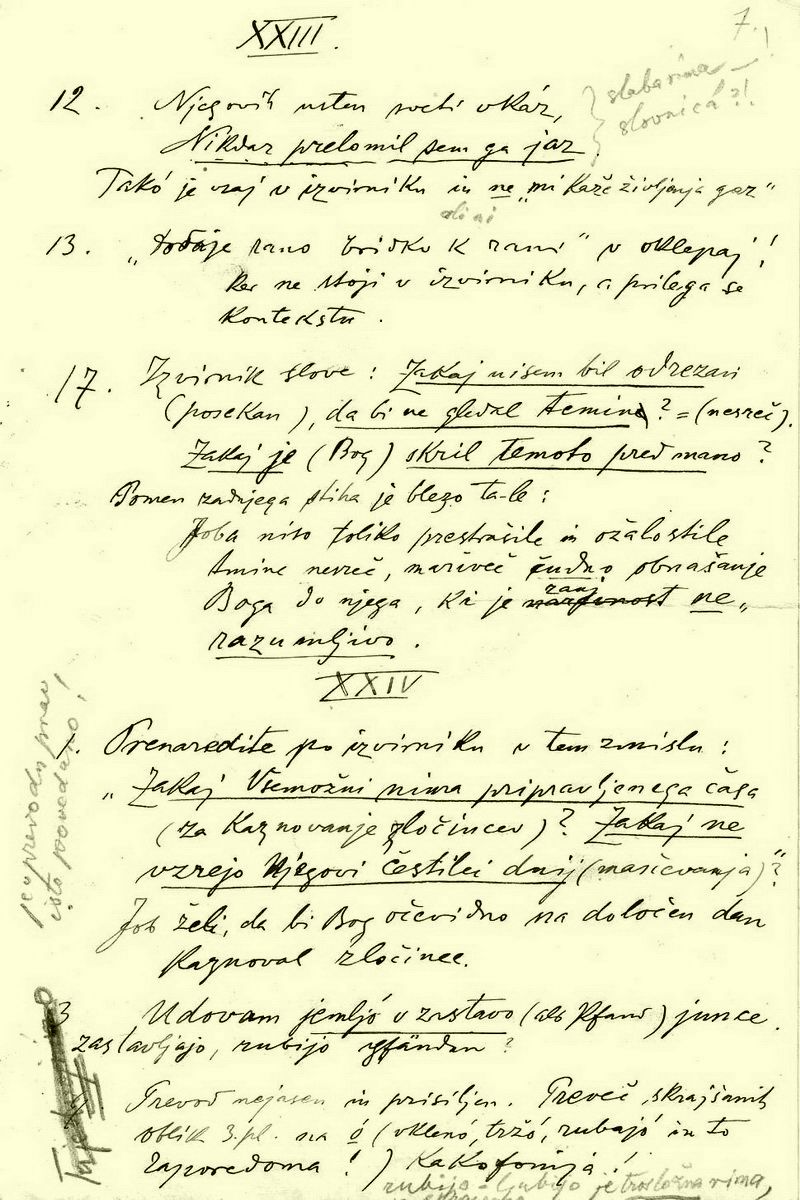 7.
XXIII.
12. Njegovih usten sveti ukáz,
Nikdar prelomil sem ga jaz
slaba rima
slovnica?!
Takó je vsaj v izvirniku in ne "mi kaže življenja gaz"
13. "dodaje rano bridko k rani" v oklepaj!
ker ne stoji v izvirniku, a prilega se
kontekstu.
17. Izvirnik slove: Zakaj nisem bil odrezan
(posekan), da bi ne gledal temine? = (nesreč).
Zakaj je (Bog) skril temoto pred mano?
Pomen zadnjega stiha je blezo ta-le:
Joba niso toliko prestrašile in ožalostile
tmine nesreč, marveč čudno obnašanje
Boga do njega, ki je zanj ne-
razumljivo.
XXIV
1. Prenaredite po izvirniku v tem zmislu:
"Zakaj Vsemožni nima pripravljenega časa
(za kaznovanje zločincev)? Zakaj ne
vzrejo Njegovi čestilci dnij (maščevanja)"?
Job želi, da bi Bog očevidno na določen dan
kaznoval zločince.
po prevodu prav
isto povedano!
3 Udovam jemljó v zastavo (als Pfand) junce.
zastavljajo, rubijo pfänden?
Prevod nejasen in prisiljen. Preveč skrajšanih
oblik 3. pl. na ó (uklenó, tržó, rubajó in to
zaporedoma!) Kakofonija!
rubijo - ljubijo je trosložna rima,